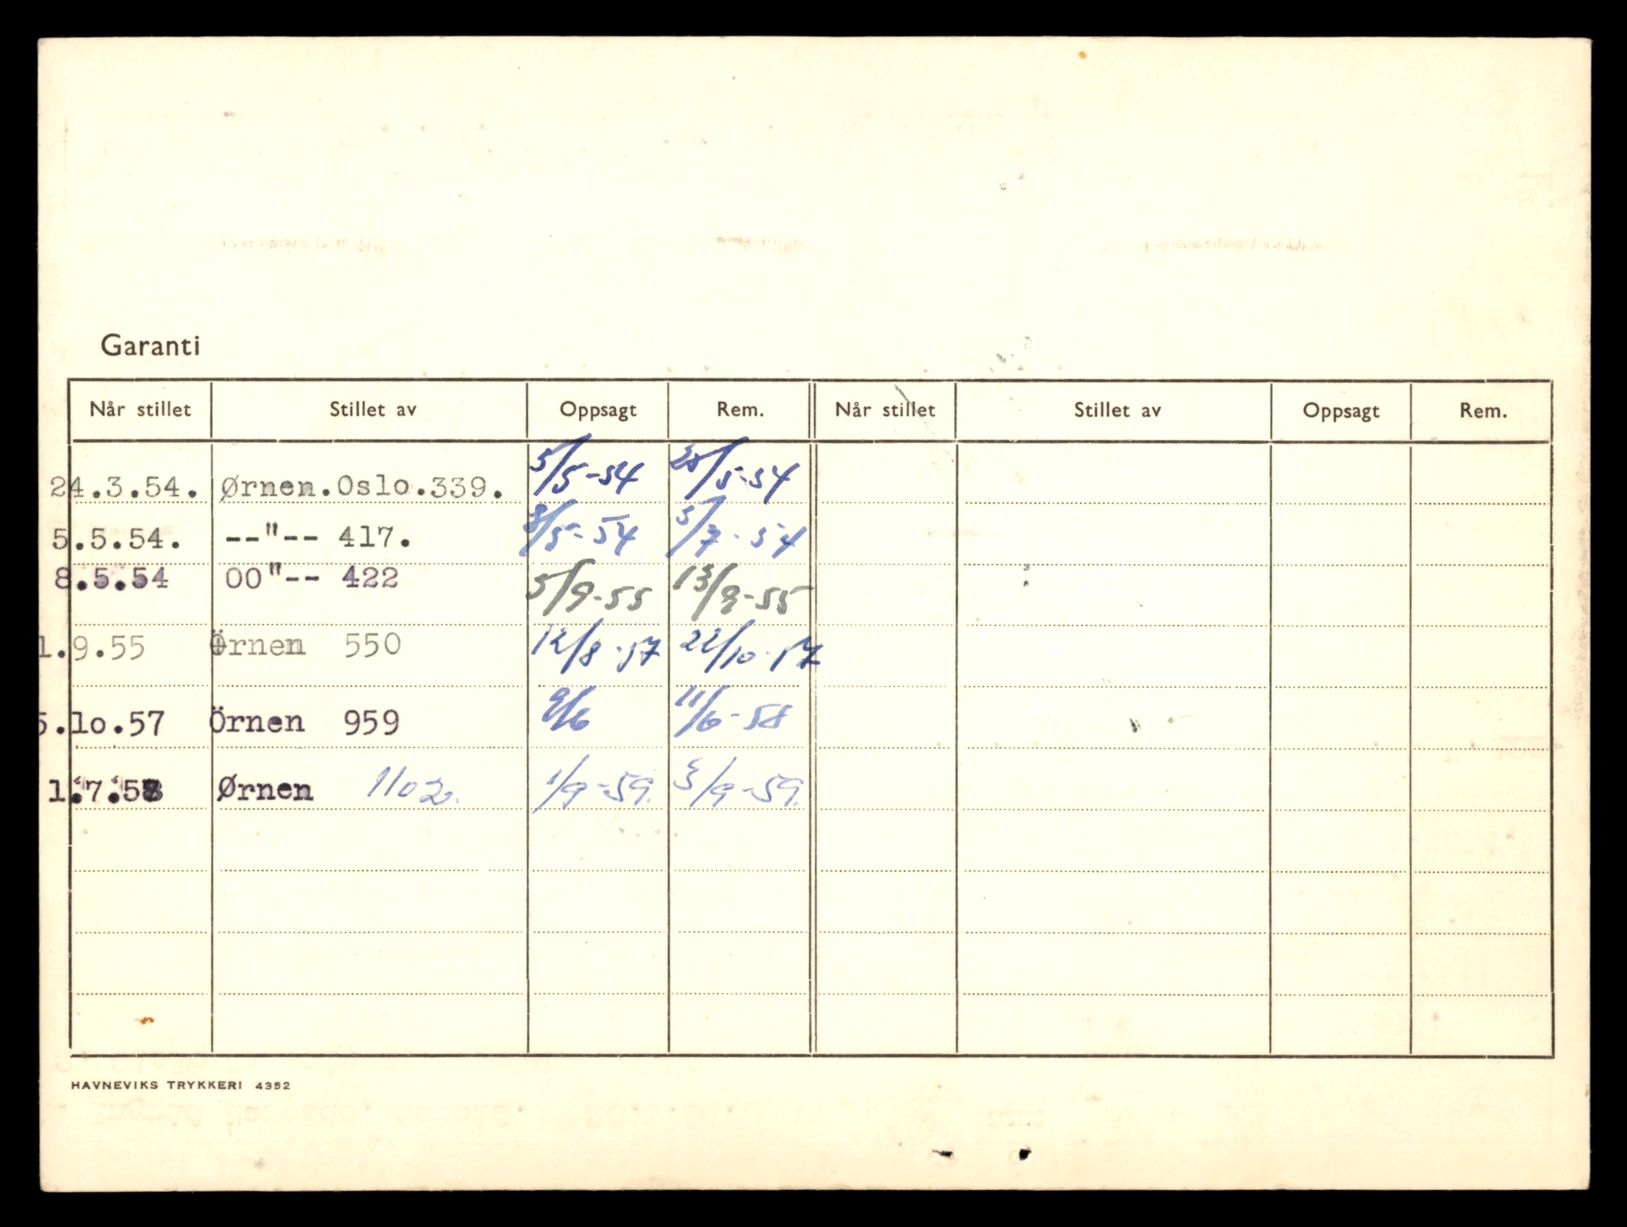 Garanti
Når stillet Stillet av Oppsagt Rem. Når stillet Stillet av Oppsagt Rem.
24.3.54. Ørnen.Oslo.339. 5/5-54 28/5-54
5.5.54. --"-- 417. 8/5-54 5/7-54
8.5.54 OO"-- 422 5/9-55 13/9-55
1.9.55 Örnen 550 12/8-57 22/10-57
5.lo.57 Örnen 959 9/6 11/6-58
1.7.58 Ørnen 1102. 1/9-59. 3/9-59.
HAVNEVIKS TRYKKERI 4352